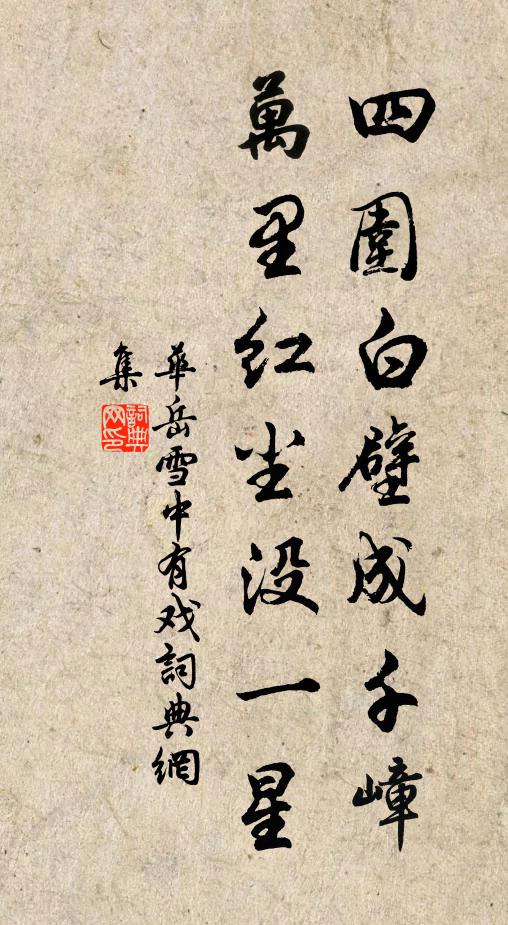 四圍白壁成千嶂
萬里红尘没一星
華岳雪中有戏詞典網
集
詞典網印